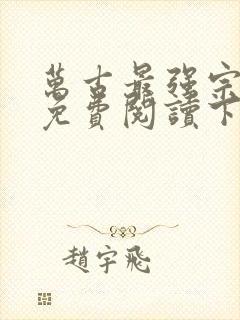 萬古最强宗
免費閱讀下
趙宇飛